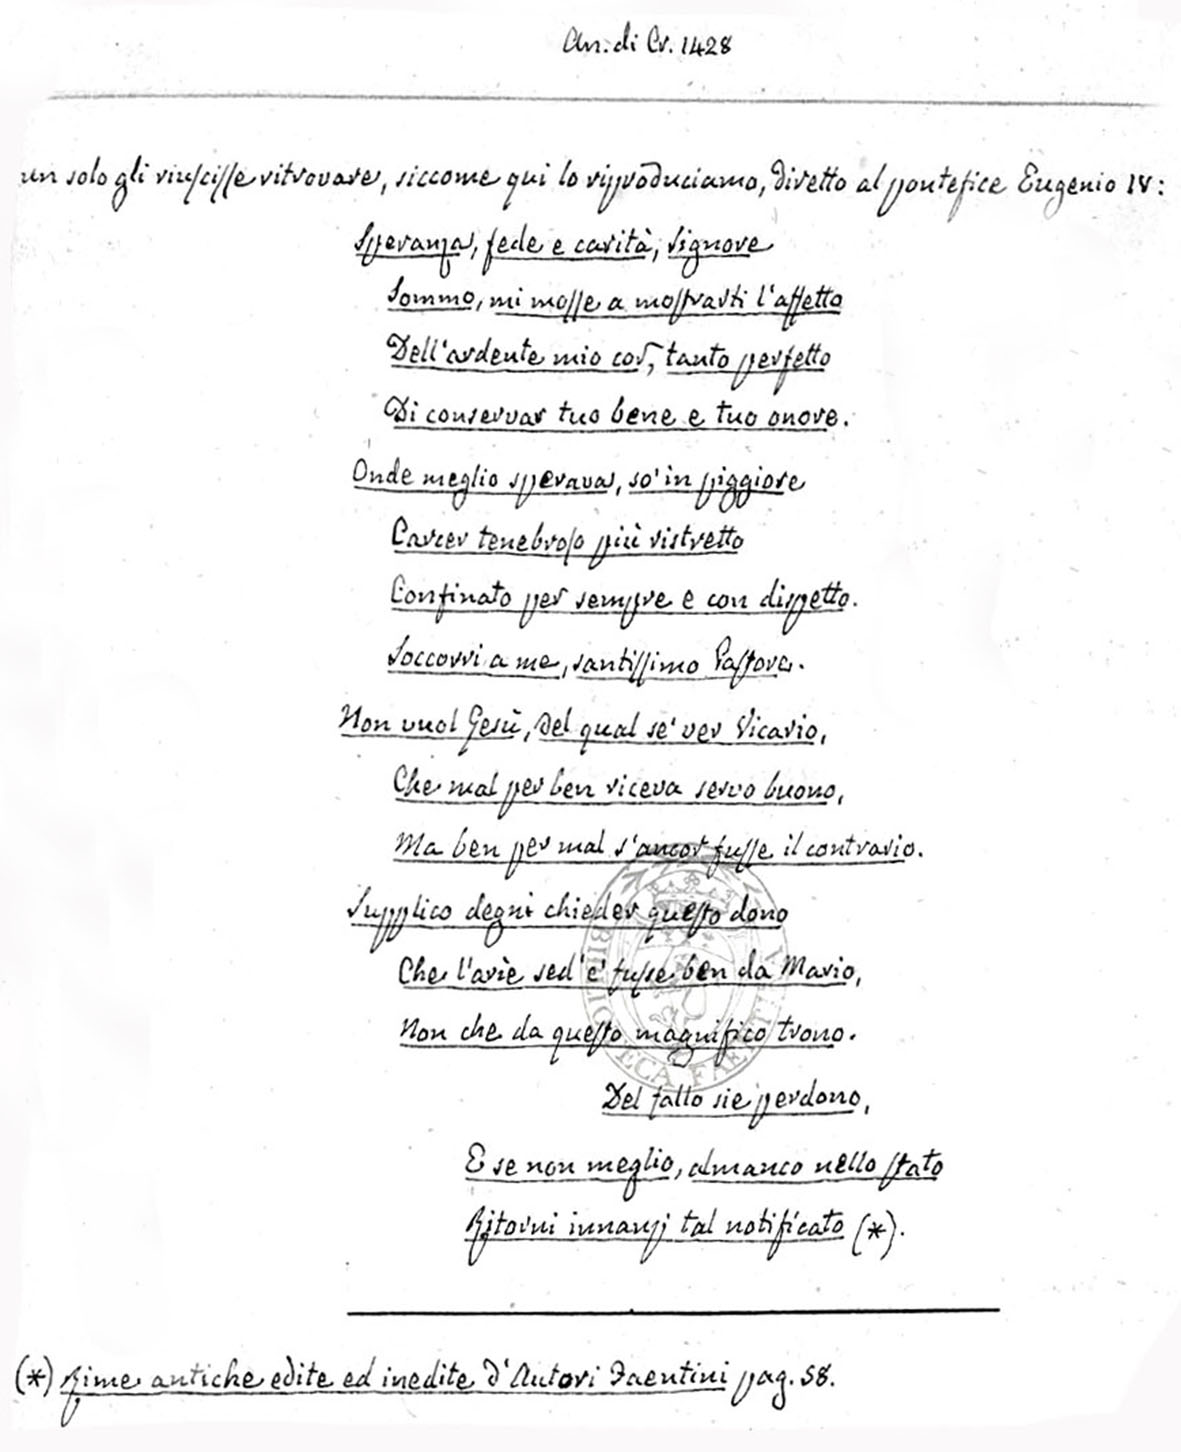 An. di Cr. 1428
un solo gli riuscisse ritrovare, siccome qui lo riproduciamo, diretto al pontefice Eugenio IV:
Speranza, fede e carità, Signore
Sommo, mi mosse a mostrarti l'affetto
Dell'ardente mio cor, tanto perfetto
Di conservar tuo bene e tuo onore.
Onde meglio sperava, so' in piggiore
Carcer tenebroso più ristretto
Confinato per sempre e con dispetto.
Soccorri a me, santissimo Pastore.
Non vuol Gesù, del qual se' ver Vicario,
Che mal per ben riceva servo buono,
Ma ben per mal s'ancor fusse il contrario.
Supplico degni chieder questo dono
Che l'arìe sed e' fusse ben da Mario,
Non che da questo magnifico trono.
Del fallo sie perdono,
E se non meglio, almanco nello stato
Ritorni innanzi tal notificato (*).
(*) Rime antiche edite ed inedite d'Autori Faentini pag. 58.
BIBLIOTECA FAENTINA